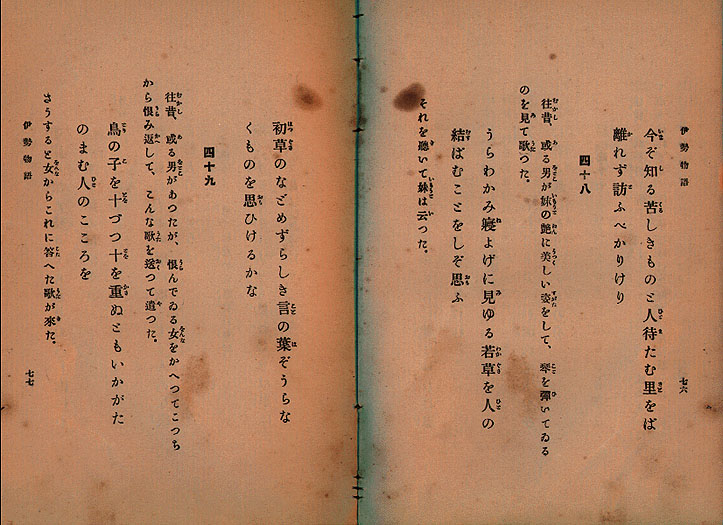 伊勢物語
七六
今ぞ知る苦しきものと人待たむ里をば
離れず訪ふべかりけり
四十八
往昔、或る男が妹の艶に美しい姿をして、琴を彈いてゐる
のを見て歌つた。
うらわかみ寢よげに見ゆる若草を人の
結ばむことをしぞ思ふ
それを聽いて妹は云つた。
初草のなどめずらしき言の葉ぞうらな
くものを思ひけるかな
四十九
往昔、或る男があつたが、恨んでゐる女をかへつてこつち
から恨み返して、こんな歌を送つて遣つた。
鳥の子を十づつ十を重ぬともいかがた
のまむ人のこころを
さうすると女からこれに答へた歌が來た。
伊勢物語
七七